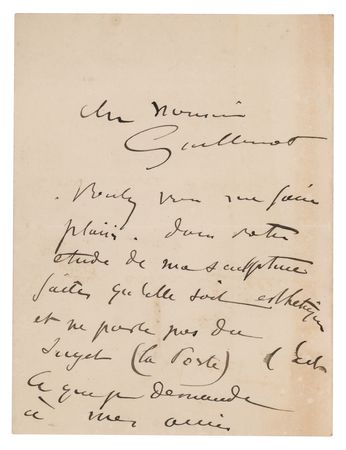 cher Monsieur
Guillemot
Voulez vous me faire
plaisir. dans votre
etude de ma sculpture
faites qu'elle soit esthetique
et ne parle pas du
sujet (la Porte) c'est
ce que je demande
à mes amis